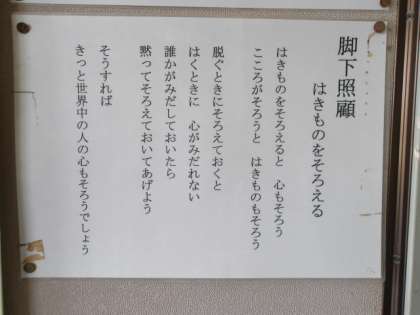 脚下照顧
はきものをそろえる
はきものをそろえると　心もそろう
こころがそろうと　はきものもそろう
脱ぐときにそろえておくと
はくときに　心がみだれない
誰かがみだしておいたら
黙ってそろえておいてあげよう
そうすれば
きっと世界中の人の心もそろうでしょう